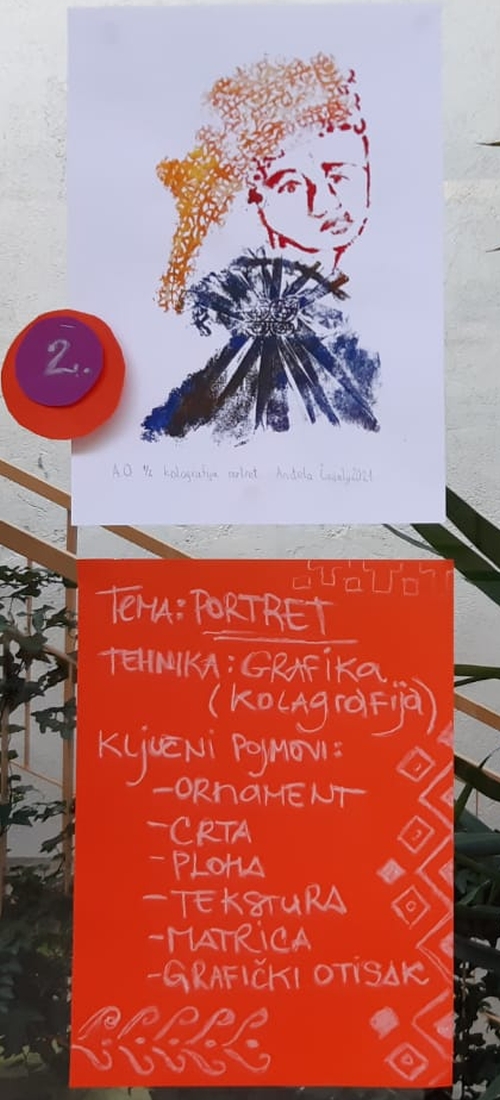 2.
A.O. kolagrafija portret Anđela 2021
TEMA: PORTRET
TEHNIKA: GRAFIKA
(KOLAGRAFIJA)
KLJUČNI POJMOVI:
-ORNAMENT
-CRTA
-PLOHA
-TEKSTURA
-MATRICA
-GRAFIČKI OTISAK